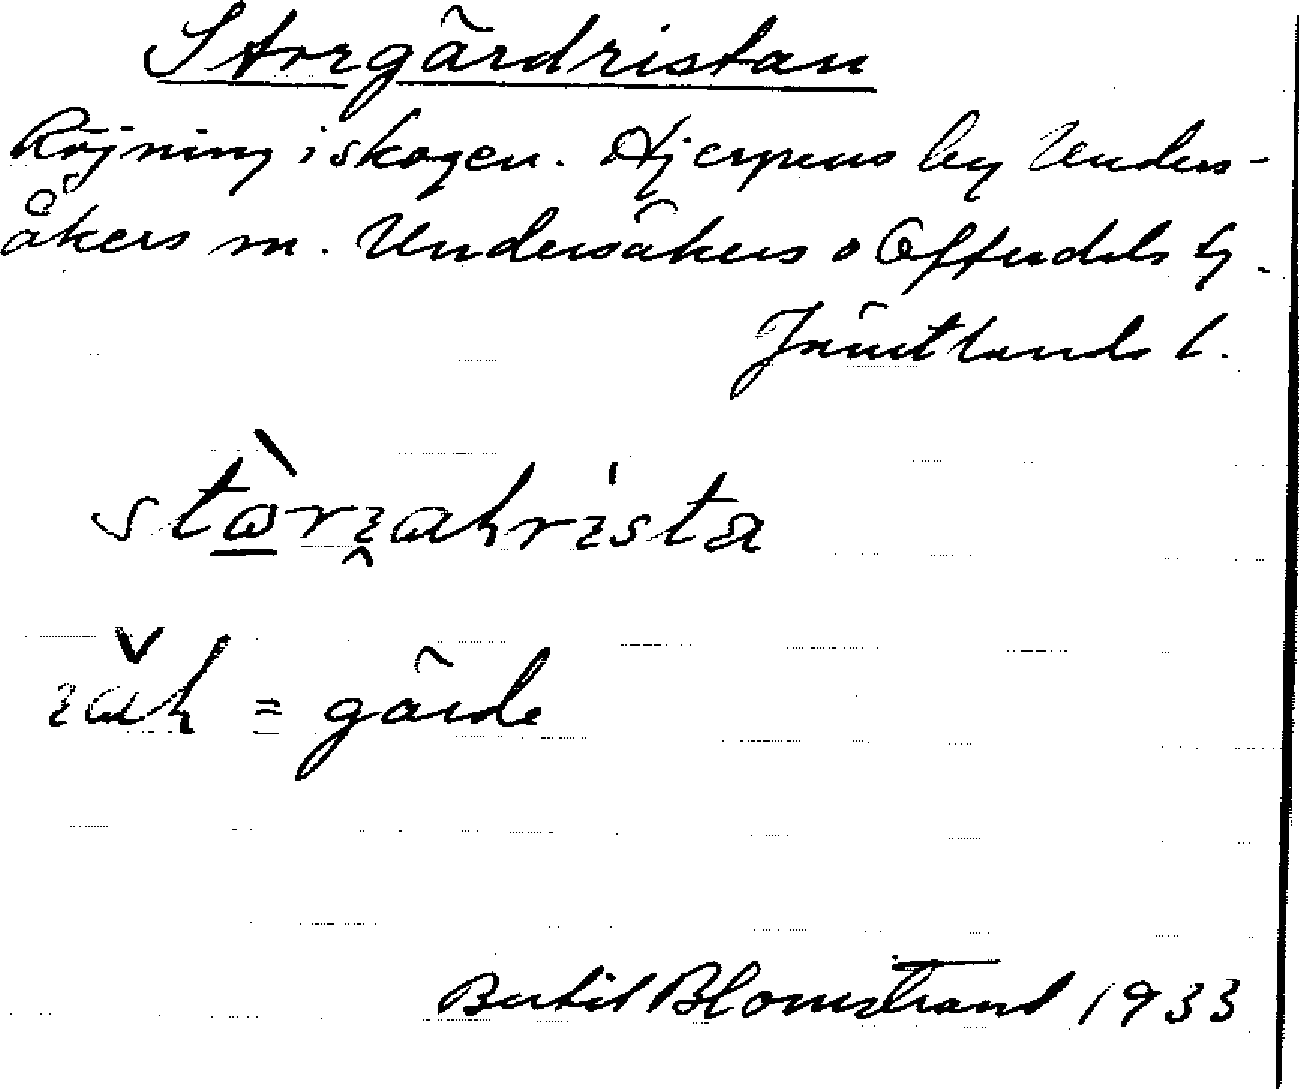 Storgärdristan
Röjning i skogen. Hjerpens by Unders-
åkers sn. Undersåkers o Offerdals tg.
Jämtlands l.
= gärde
Bertil Blomstrand 1933